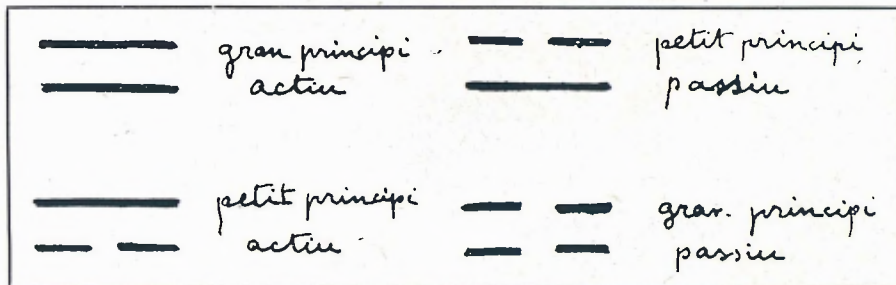 gran principi
actiu
petit principi
passiu
petit principi
actiu
gran. principi
passiu